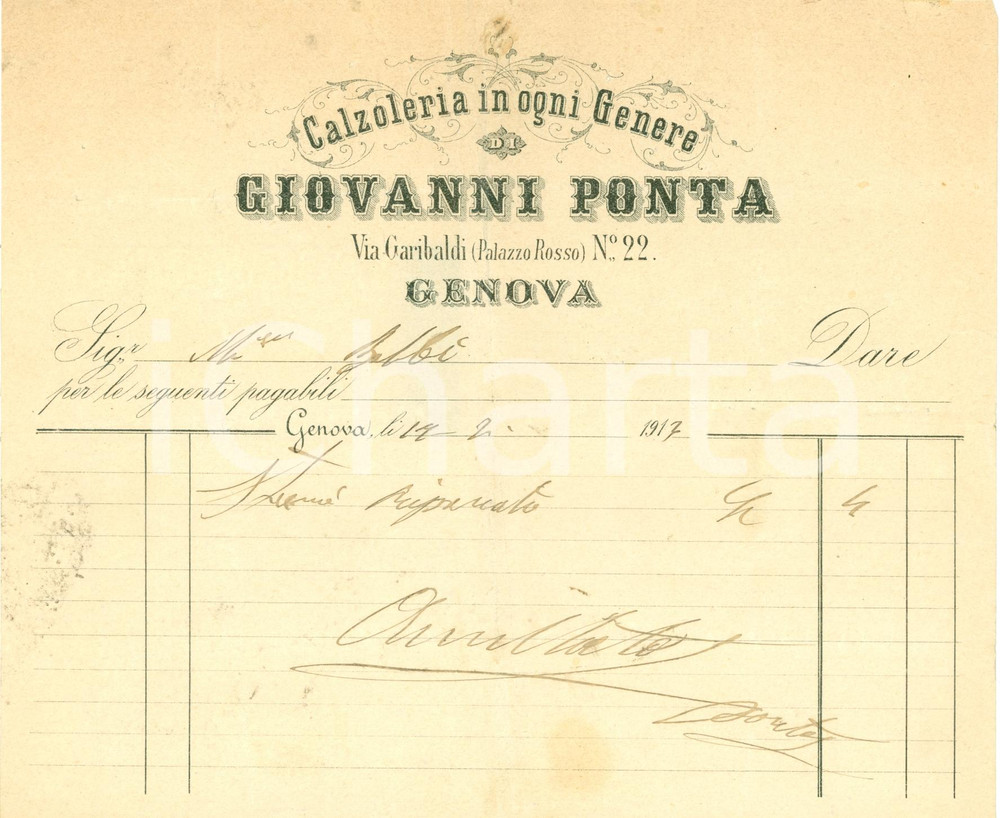 Calzoleria in ogni Genere
DI
GIOVANNI PONTA
Via Garibaldi (Palazzo Rosso) Nº. 22.
GENOVA
Sig.r Balbi Dare
per le seguenti pagabili
Genova, li 19 - 2 - 1917
Riparato 4 4
Annullato
Ponta
iCharta